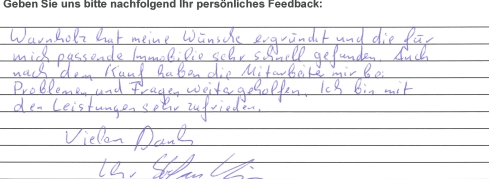 Geben Sie uns bitte nachfolgend Ihr persönliches Feedback:
Warnholz hat meine Wünsche ergründit und die für
mich passende Immobilie sehr schnell gefunden. Auch
nach dem Kauf haben die Mitarbeiter mir bei
Problemen und Fragen weitergeholfen. Ich bin mit
den Leistungen sehr zufrieden.
Vielen Dank
Ihr